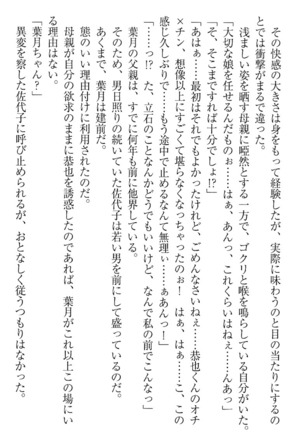 その快感の大きさは身をもって経験したが、実際に味わうのと目の当たりにするの
とでは衝撃がまるで違った。
浅ましい姿を晒す母親に唖然とする一方で、ゴクリと喉を鳴らしている自分がいた。
「大切な娘を任せるんだものぉ……はぁ、あんっ、これくらいはねぇ……んあっ」
「そ、そこまですれば十分でしょ!?」
「あはぁ……最初はそれでもよかったけれど、ごめんなさいねぇ……恭也くんのオチ
×チン、想像以上にすごくて堪らなくなっちゃったのぉ! はぁ、はぁ……こ、この
感じ久しぶりで……もう途中で止めるなんて無理ぃ……あんっ!」
「……っ。た、立石のことなんかどうでもいいけど、なんで私の前でこんなっ」
葉月の父親は、すでに何年も前に他界している。
そのため、男日照りの続いていた佐代子は若い男を前にして盛っているのだ。
あくまで、葉月は建前だ。
態のいい理由付けに利用されたのだ。
母親が自分の欲求のままに恭也を誘惑したのであれば、葉月がこれ以上この場にい
る理由はない。
「葉月ちゃん?」
異変を察した佐代子に呼び止められるが、おとなしく従うつもりはなかった。